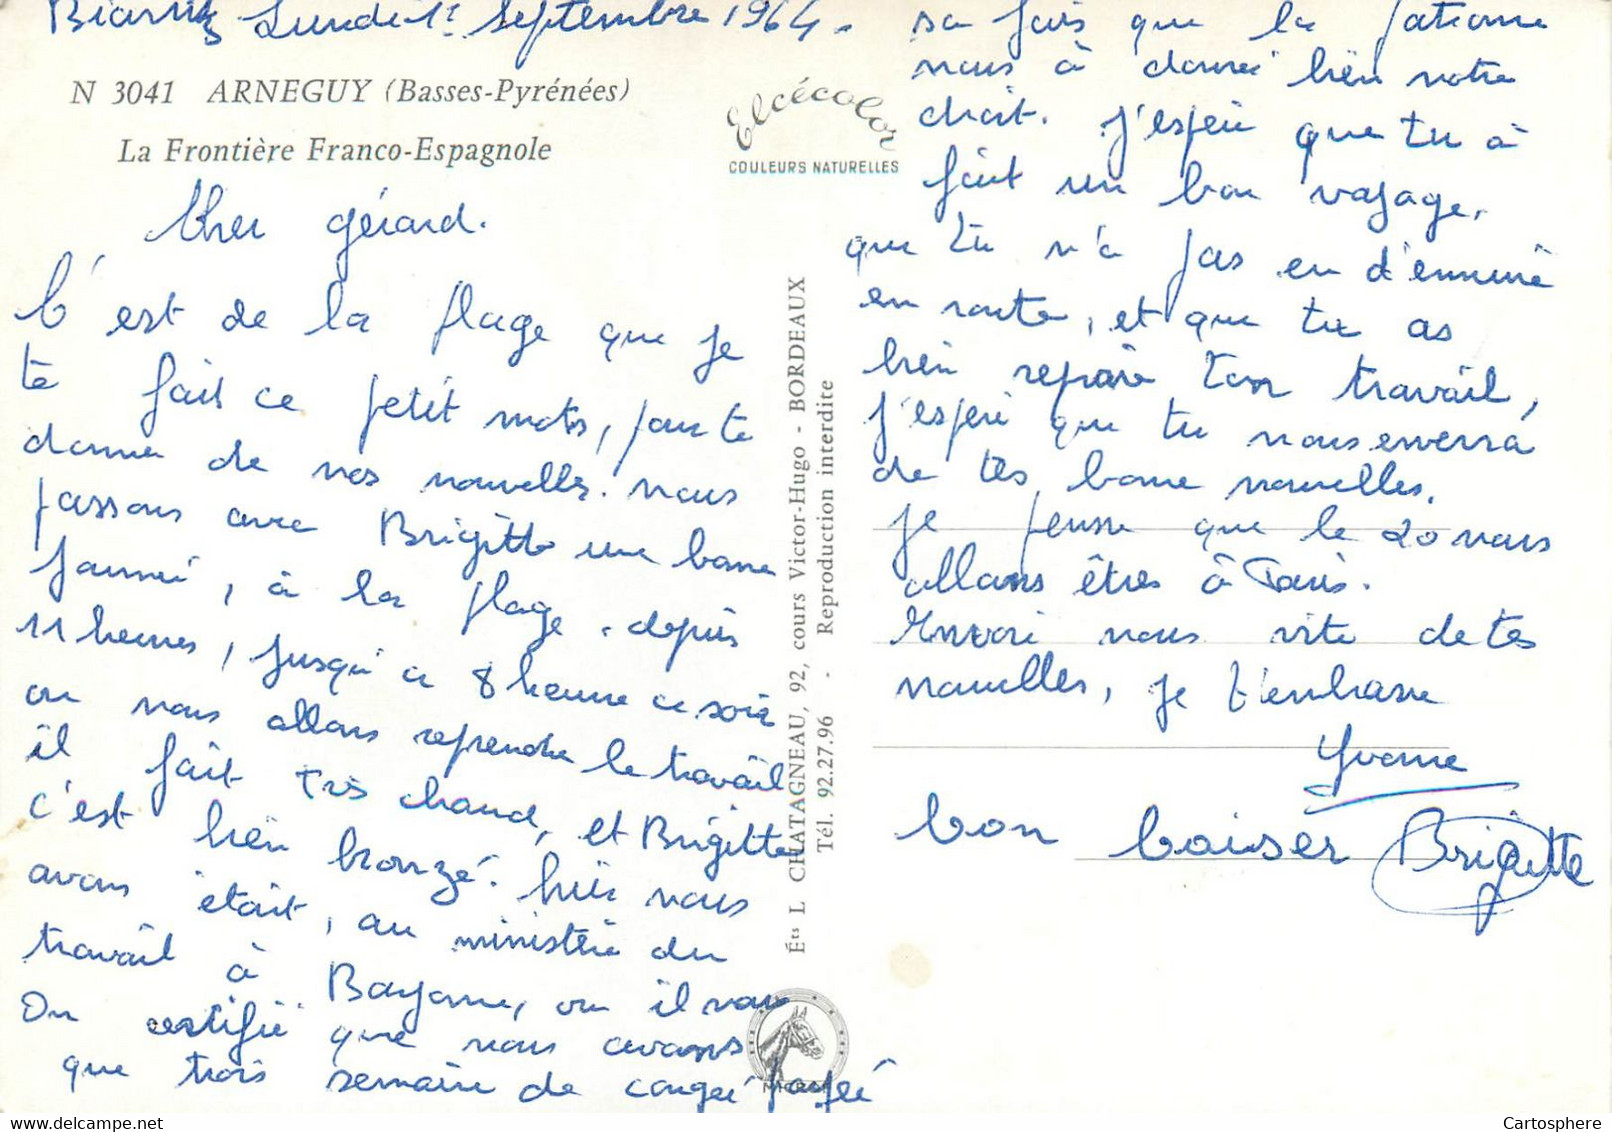 Biarritz Lundi 1r Septembre 1964.
N 3041 ARNEGUY (Basses-Pyrénées)
La Frontière Franco-Espagnole
Elcécolor
COULEURS NATURELLES
Cher gérard.
C'est de la plage que je
te fait ce petit mots, pour te
donner de nos nouvelles. nous
passons avec Brigitte une bonne
Journeé, à la plage. depuis
11 heures, jusqu'a 8 heure ce soir
ou nous allons reprendre le travail
il fait très chaud, et Brigitte
c'est bien bronzé. hier nous
avons était, au ministère du
travail à Bayonne, ou il nous
On certifié que nous avons
que trois semaine de congeé payeé
sa fais que la patronne
nous à donneé bien notre
droit. J'espère que tu à
fait un bon voyage,
que tu n'a pas eu d'ennuie
en route, et que tu as
bien repris ton travail,
J'espère que tu nous enverra
de tes bonne nouvelles.
Je pense que le 20 nous
allons êtres à Paris.
Envoi nous vite de tes
nouvelles, je t'embrasse
Yvonne
bon baiser Brigitte
Éts L CHATAGNEAU, 92, cours Victor-Hugo - BORDEAUX
Tél. 92.27.96 - Reproduction interdite
Cartosphere